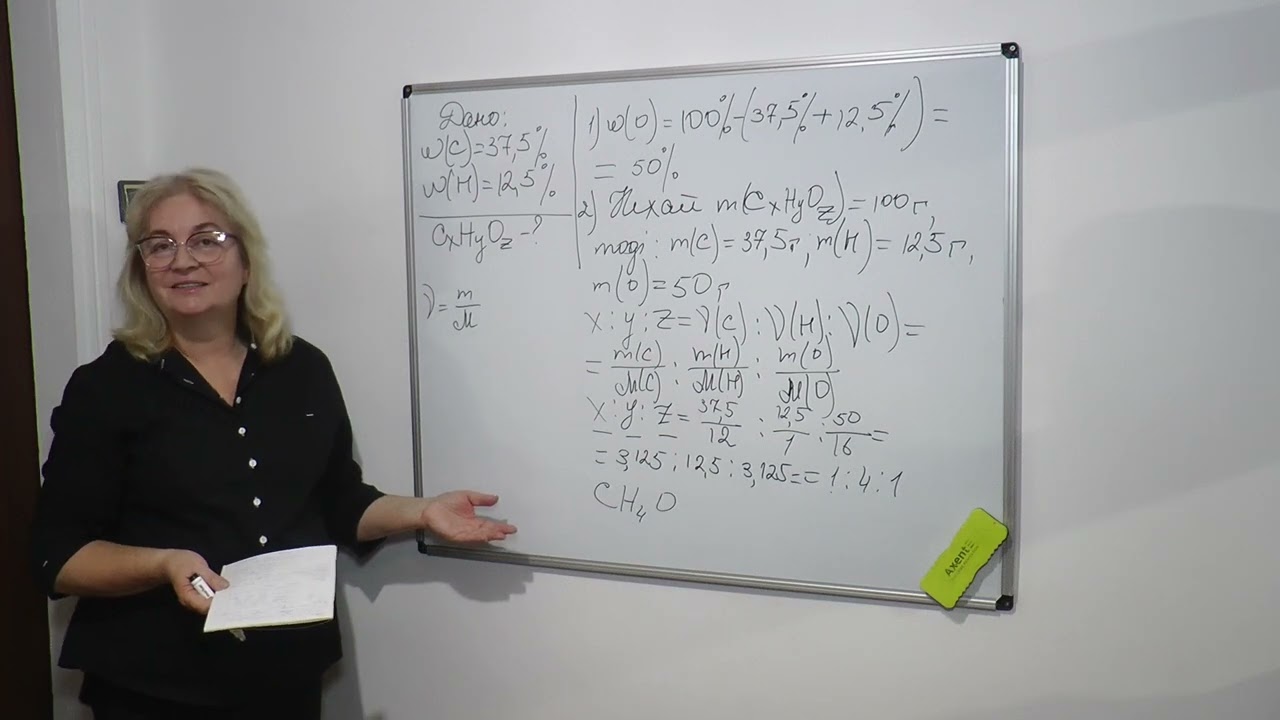 Дано:
w(C)=37,5%
w(H)=12,5%
CxHyOz-?
ν=m/M
1) w(O)=100%-(37,5%+12,5%)=
=50%
2) Нехай m(CxHyOz)=100г,
тоді: m(C)=37,5г; m(H)=12,5г,
m(O)=50г
x:y:z=ν(C):ν(H):ν(O)=
=m(C)/M(C):m(H)/M(H):m(O)/M(O)
x:y:z=37,5/12:12,5/1:50/16=
=3,125:12,5:3,125==1:4:1
CH₄O
Axent